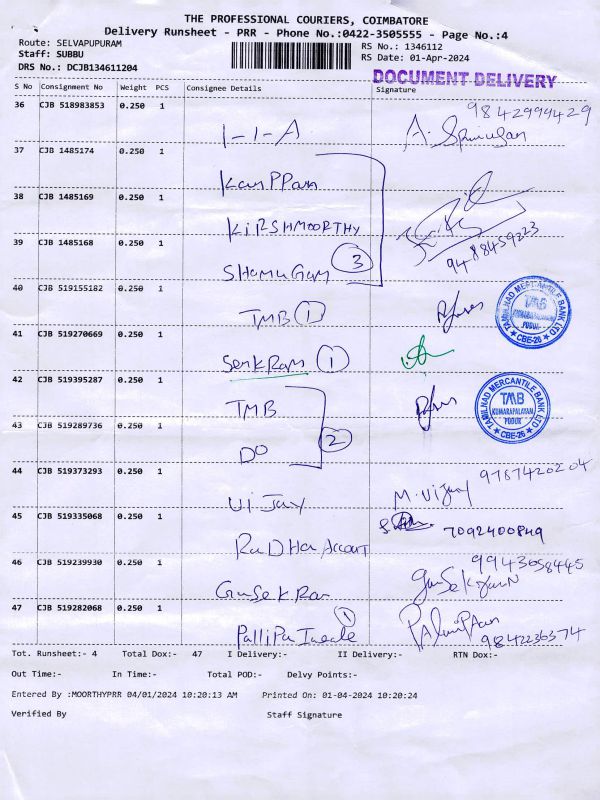 THE PROFESSIONAL COURIERS, COIMBATORE
Delivery Runsheet - PRR - Phone No.:0422-3505555 - Page No.:4
Route: SELVAPUPURAM
Staff: SUBBU
DRS No.: DCJB134611204
RS No.: 1346112
RS Date: 01-Apr-2024
DOCUMENT DELIVERY
S No Consignment No Weight PCS Consignee Details Signature
36 CJB 518983853 0.250 1 I-I-A 9842999429
37 CJB 1485174 0.250 1
38 CJB 1485169 0.250 1 KIRSHMOORTHY
39 CJB 1485168 0.250 1 SHamuGam 3 9488459223
40 CJB 519155182 0.250 1 TMB 1
TAMILNAD MERCANTILE BANK LTD
TMB
KUMARAPALAYAM
PUDUR
CBE-26
41 CJB 519270669 0.250 1 SenkRam 1
42 CJB 519395287 0.250 1 TMB
TAMILNAD MERCANTILE BANK LTD
TMB
KUMARAPALAYAM
PUDUR
CBE-26
43 CJB 519289736 0.250 1 DO 2
44 CJB 519373293 0.250 1 ViJay M. Vijay 9787420204
45 CJB 519335068 0.250 1 RaDHa 7092400849
46 CJB 519239930 0.250 1 GunSekRan 9943658445
47 CJB 519282068 0.250 1 1 9842236374
Tot. Runsheet:- 4 Total Dox:- 47 I Delivery:- II Delivery:- RTN Dox:-
Out Time:- In Time:- Total POD:- Delvy Points:-
Entered By :MOORTHYPRR 04/01/2024 10:20:13 AM Printed On: 01-04-2024 10:20:24
Verified By Staff Signature